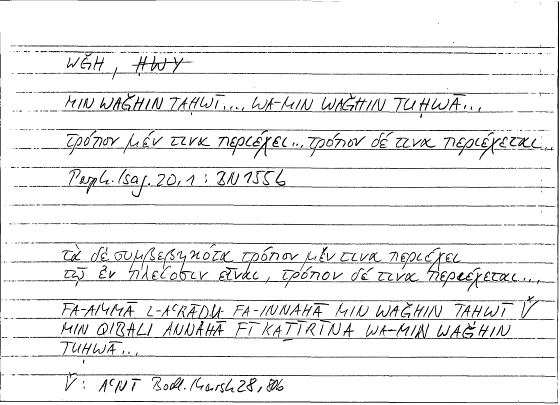 WǦH, ḤWY
MIN WAǦHIN TAḤWĪ... WA-MIN WAǦHIN TUḤWĀ...
τρόπον μέν τινα περιέχει... τρόπον δέ τινα περιέχεται...
Porph. Isag. 20,1: BN 155b
τὰ δὲ συμβεβηκότα τρόπον μέν τινα περιέχει
τῷ ἐν πλείοσιν εἶναι, τρόπον δέ τινα περιέχεται...
FA-AMMĀ L-AʿRĀḌU FA-INNAHĀ MIN WAǦHIN TAḤWĪ V̌
MIN QIBALI ANNAHĀ FĪ KAṮĪRĪNA WA-MIN WAǦHIN
TUḤWĀ...
V̌: AʿNĪ Bodl. Marsh 28, 80b